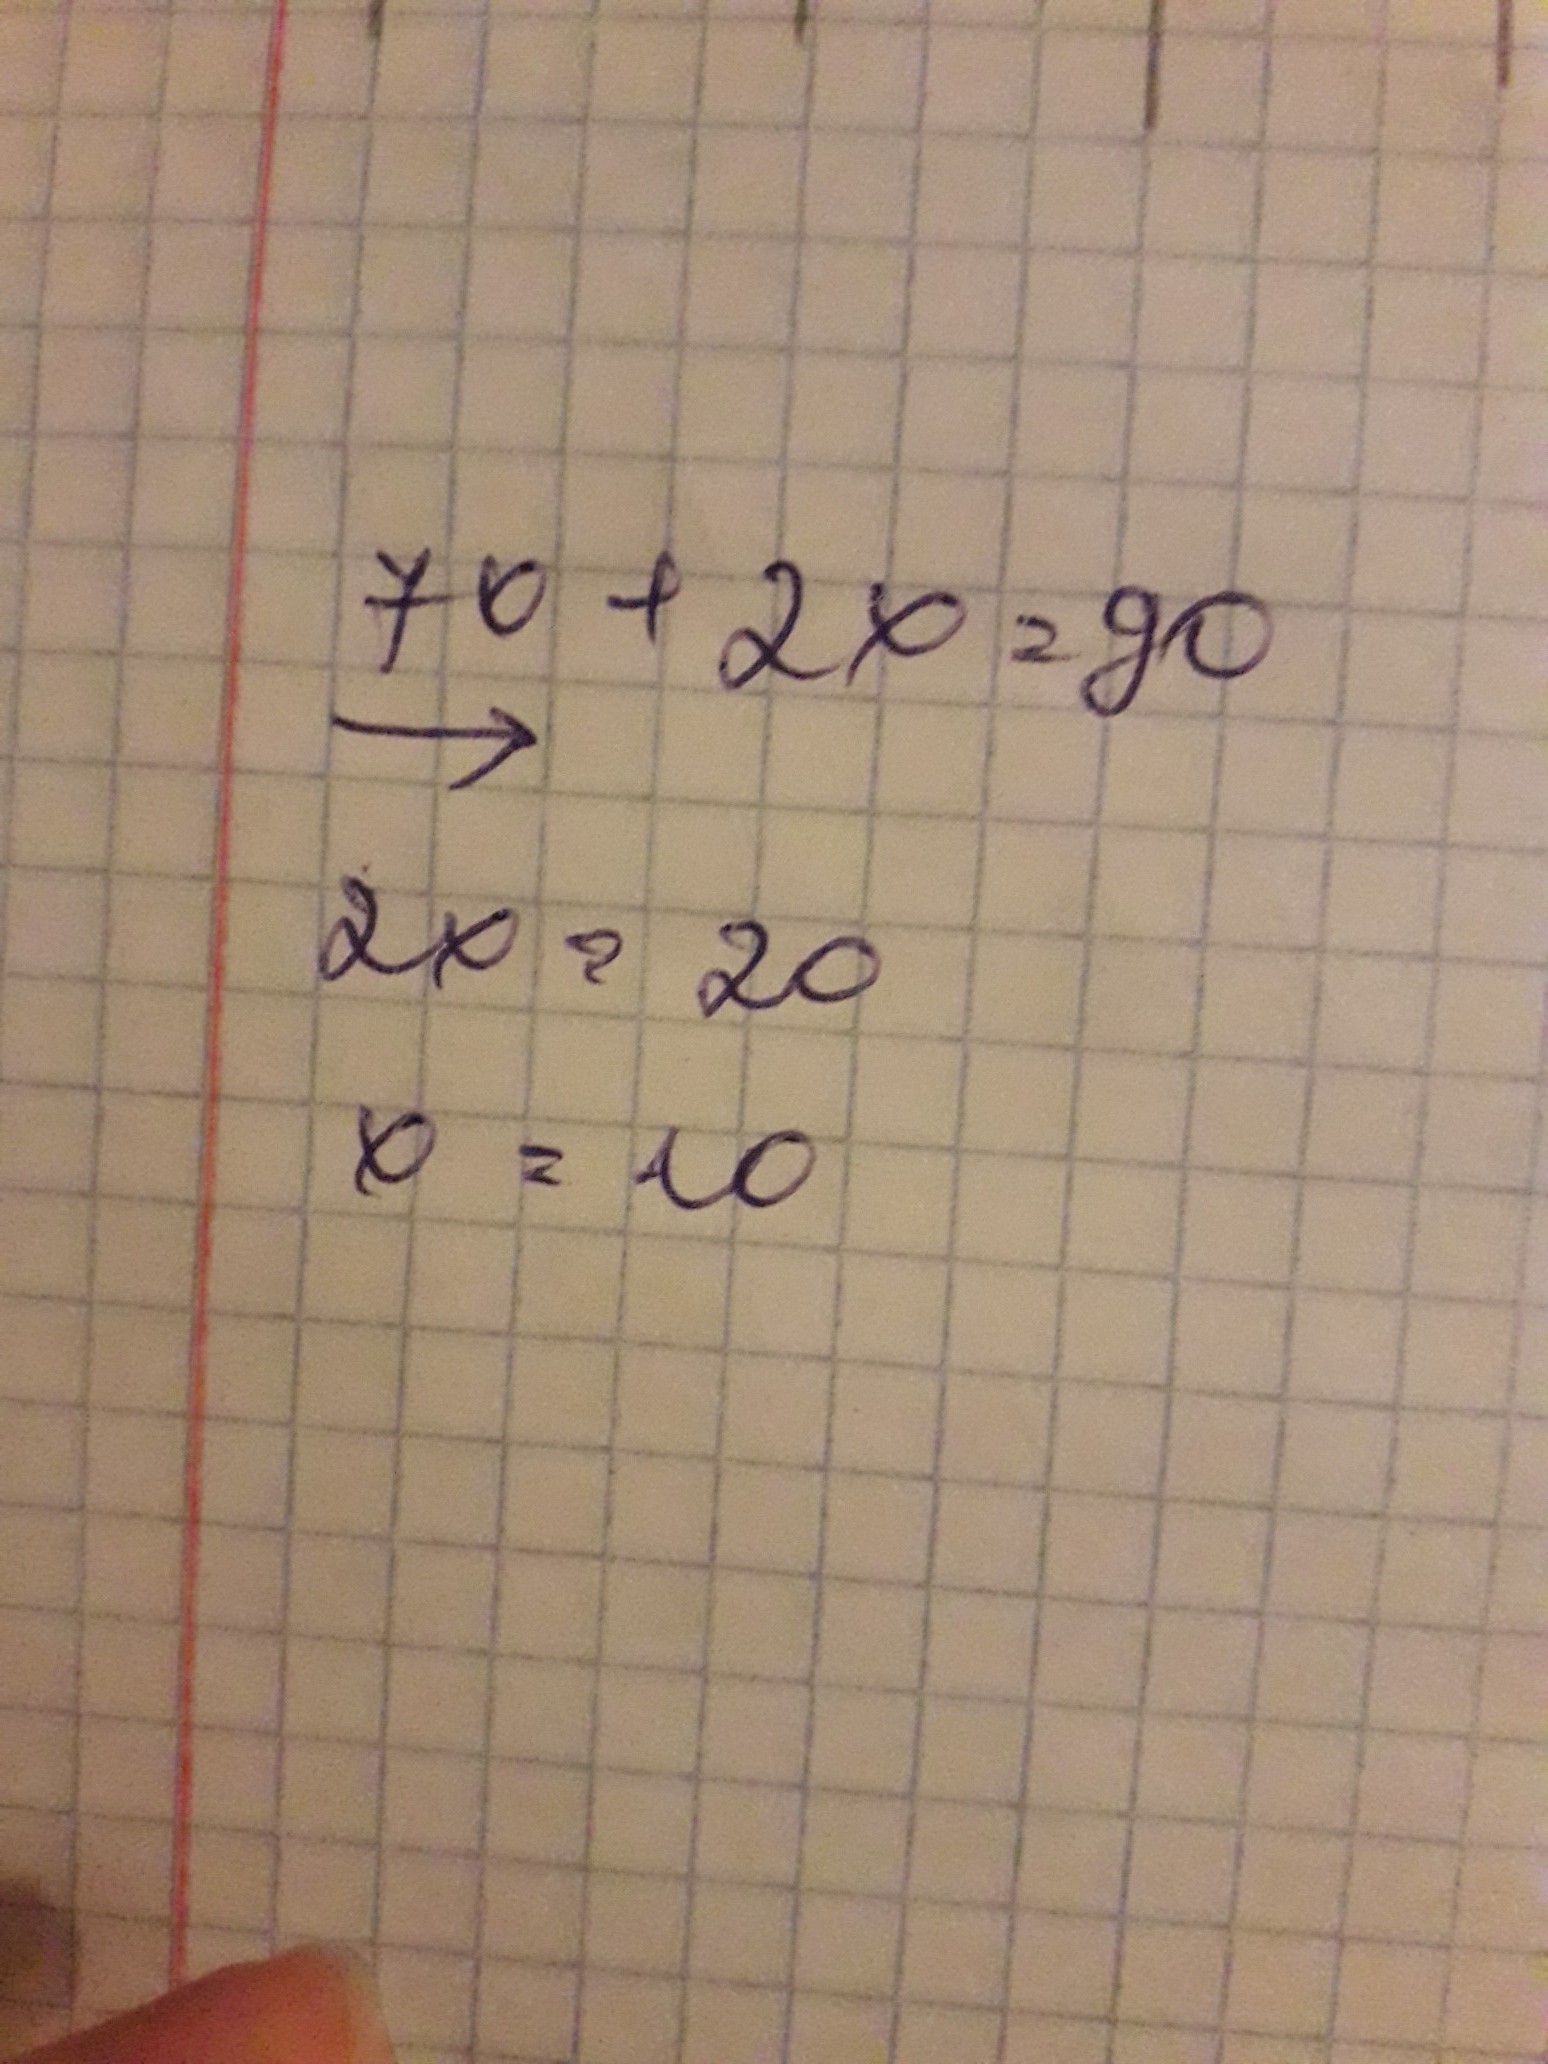 70 + 2x = 90
→
2x = 20
x = 10